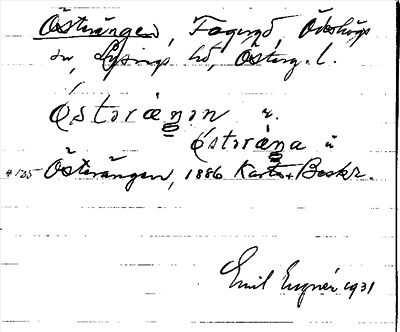 Östrängen, Fageryd, Ödeshögs
sn, Lysings hd, Österg. l.
Östəräŋən
östəräŋa
Österängen, 1886 Karta + Beskr.
Emil 1931